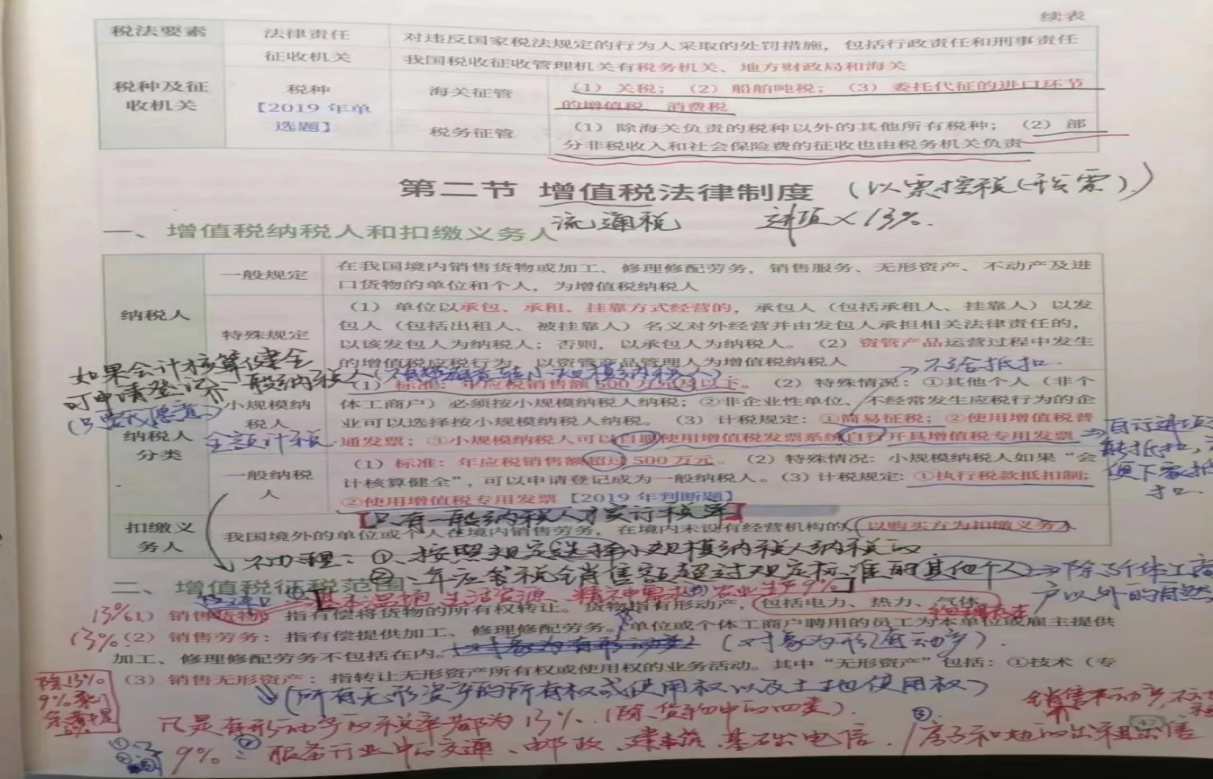 续表
税法要素 法律责任 对违反国家税法规定的行为人采取的处罚措施，包括行政责任和刑事责任
税种及征收机关 征收机关 我国税收征收管理机关有税务机关、地方财政局和海关
税种【2019年单选题】 海关征管 （1）关税；（2）船舶吨税；（3）委托代征的进口环节
的增值税、消费税
税务征管 （1）除海关负责的税种以外的其他所有税种；（2）部
分非税收入和社会保险费的征收也由税务机关负责
第二节 增值税法律制度 （以票控税（发票））
流通税 进项×13%.
一、增值税纳税人和扣缴义务人
纳税人 一般规定 在我国境内销售货物或加工、修理修配劳务，销售服务、无形资产、不动产及进
口货物的单位和个人，为增值税纳税人
特殊规定 （1）单位以承包、承租、挂靠方式经营的，承包人（包括承租人、挂靠人）以发
包人（包括出租人、被挂靠人）名义对外经营并由发包人承担相关法律责任的，
以该发包人为纳税人；否则，以承包人为纳税人。（2）资管产品运营过程中发生
的增值税应税行为，以资管产品管理人为增值税纳税人
如果会计核算健全
可申请登记介一般纳税人
不含抵扣.
纳税人分类 小规模纳税人 （1）标准：年应税销售额500万元及以下。（2）特殊情况：①其他个人（非个
体工商户）必须按小规模纳税人纳税；②非企业性单位、不经常发生应税行为的企
业可以选择按小规模纳税人纳税。（3）计税规定：①简易征税；②使用增值税普
通发票；③小规模纳税人可以自愿使用增值税发票系统自行开具增值税专用发票
全额计税
一般纳税人 （1）标准：年应税销售额超过500万元。（2）特殊情况：小规模纳税人如果“会
计核算健全”，可以申请登记成为一般纳税人。（3）计税规定：①执行税款抵扣制；
②使用增值税专用发票【2019年判断题】
【只有一般纳税人才实行税率】
扣缴义务人 我国境外的单位或个人在境内销售劳务，在境内未设有经营机构的，以购买方为扣缴义务人
不办理：①、按照规定选择小规模纳税人纳税的.
②、年应税销售额超过规定标准的其他个人→除了个体工商
户以外的自然
二、增值税征税范围
13%（1）销售货物：指有偿将货物的所有权转让。货物指有形动产，包括电力、热力、气体
13%（2）销售劳务：指有偿提供加工、修理修配劳务。单位或个体工商户聘用的员工为本单位或雇主提供
加工、修理修配劳务不包括在内。
（3）销售无形资产：指转让无形资产所有权或使用权的业务活动。其中“无形资产”包括：①技术（专
（所有无形资产的所有权或使用权以及土地使用权）
凡是有形动产的税率都为13%.（除货物中的四类）.
9%：服务行业中的交通、邮政、建筑、基础电信.